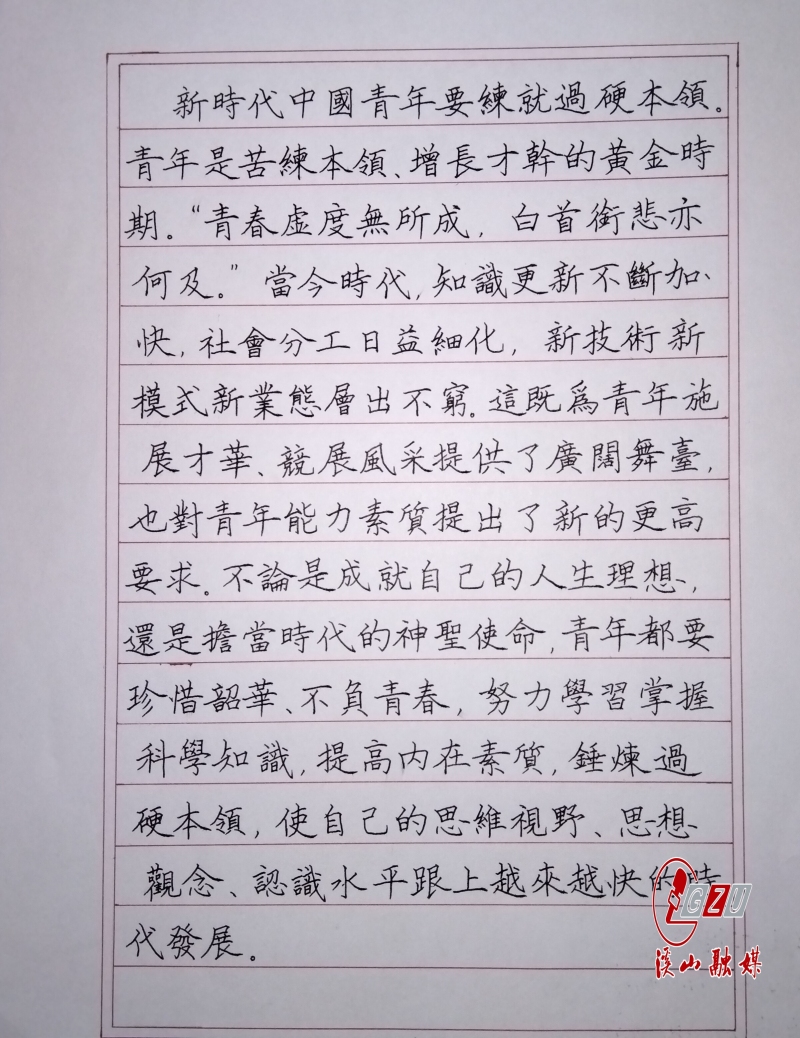 新時代中國青年要練就過硬本領。
青年是苦練本領、增長才幹的黃金時
期。“青春虛度無所成，白首銜悲亦
何及。”當今時代，知識更新不斷加
快，社會分工日益細化，新技術新
模式新業態層出不窮。這既爲青年施
展才華、競展風采提供了廣闊舞臺，
也對青年能力素質提出了新的更高
要求。不論是成就自己的人生理想，
還是擔當時代的神聖使命，青年都要
珍惜韶華、不負青春，努力學習掌握
科學知識，提高内在素質，錘煉過
硬本領，使自己的思維視野、思想
觀念、認識水平跟上越來越快的時
代發展。
GZU
溪山融媒